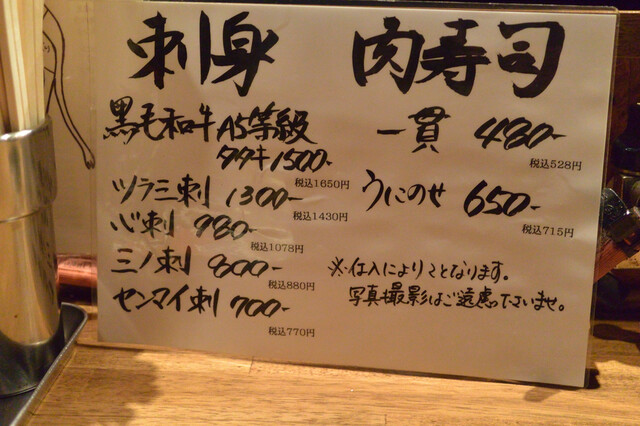 刺身
黒毛和牛A5等級
タタキ1500-
税込1650円
ツラミ刺 1300-
税込1430円
心刺 980-
税込1078円
ミノ刺 800-
税込880円
センマイ刺 700-
税込770円
肉寿司
一貫 480-
税込528円
うにのせ 650-
税込715円
※仕入によりことなります。
写真撮影はご遠慮下さいませ。